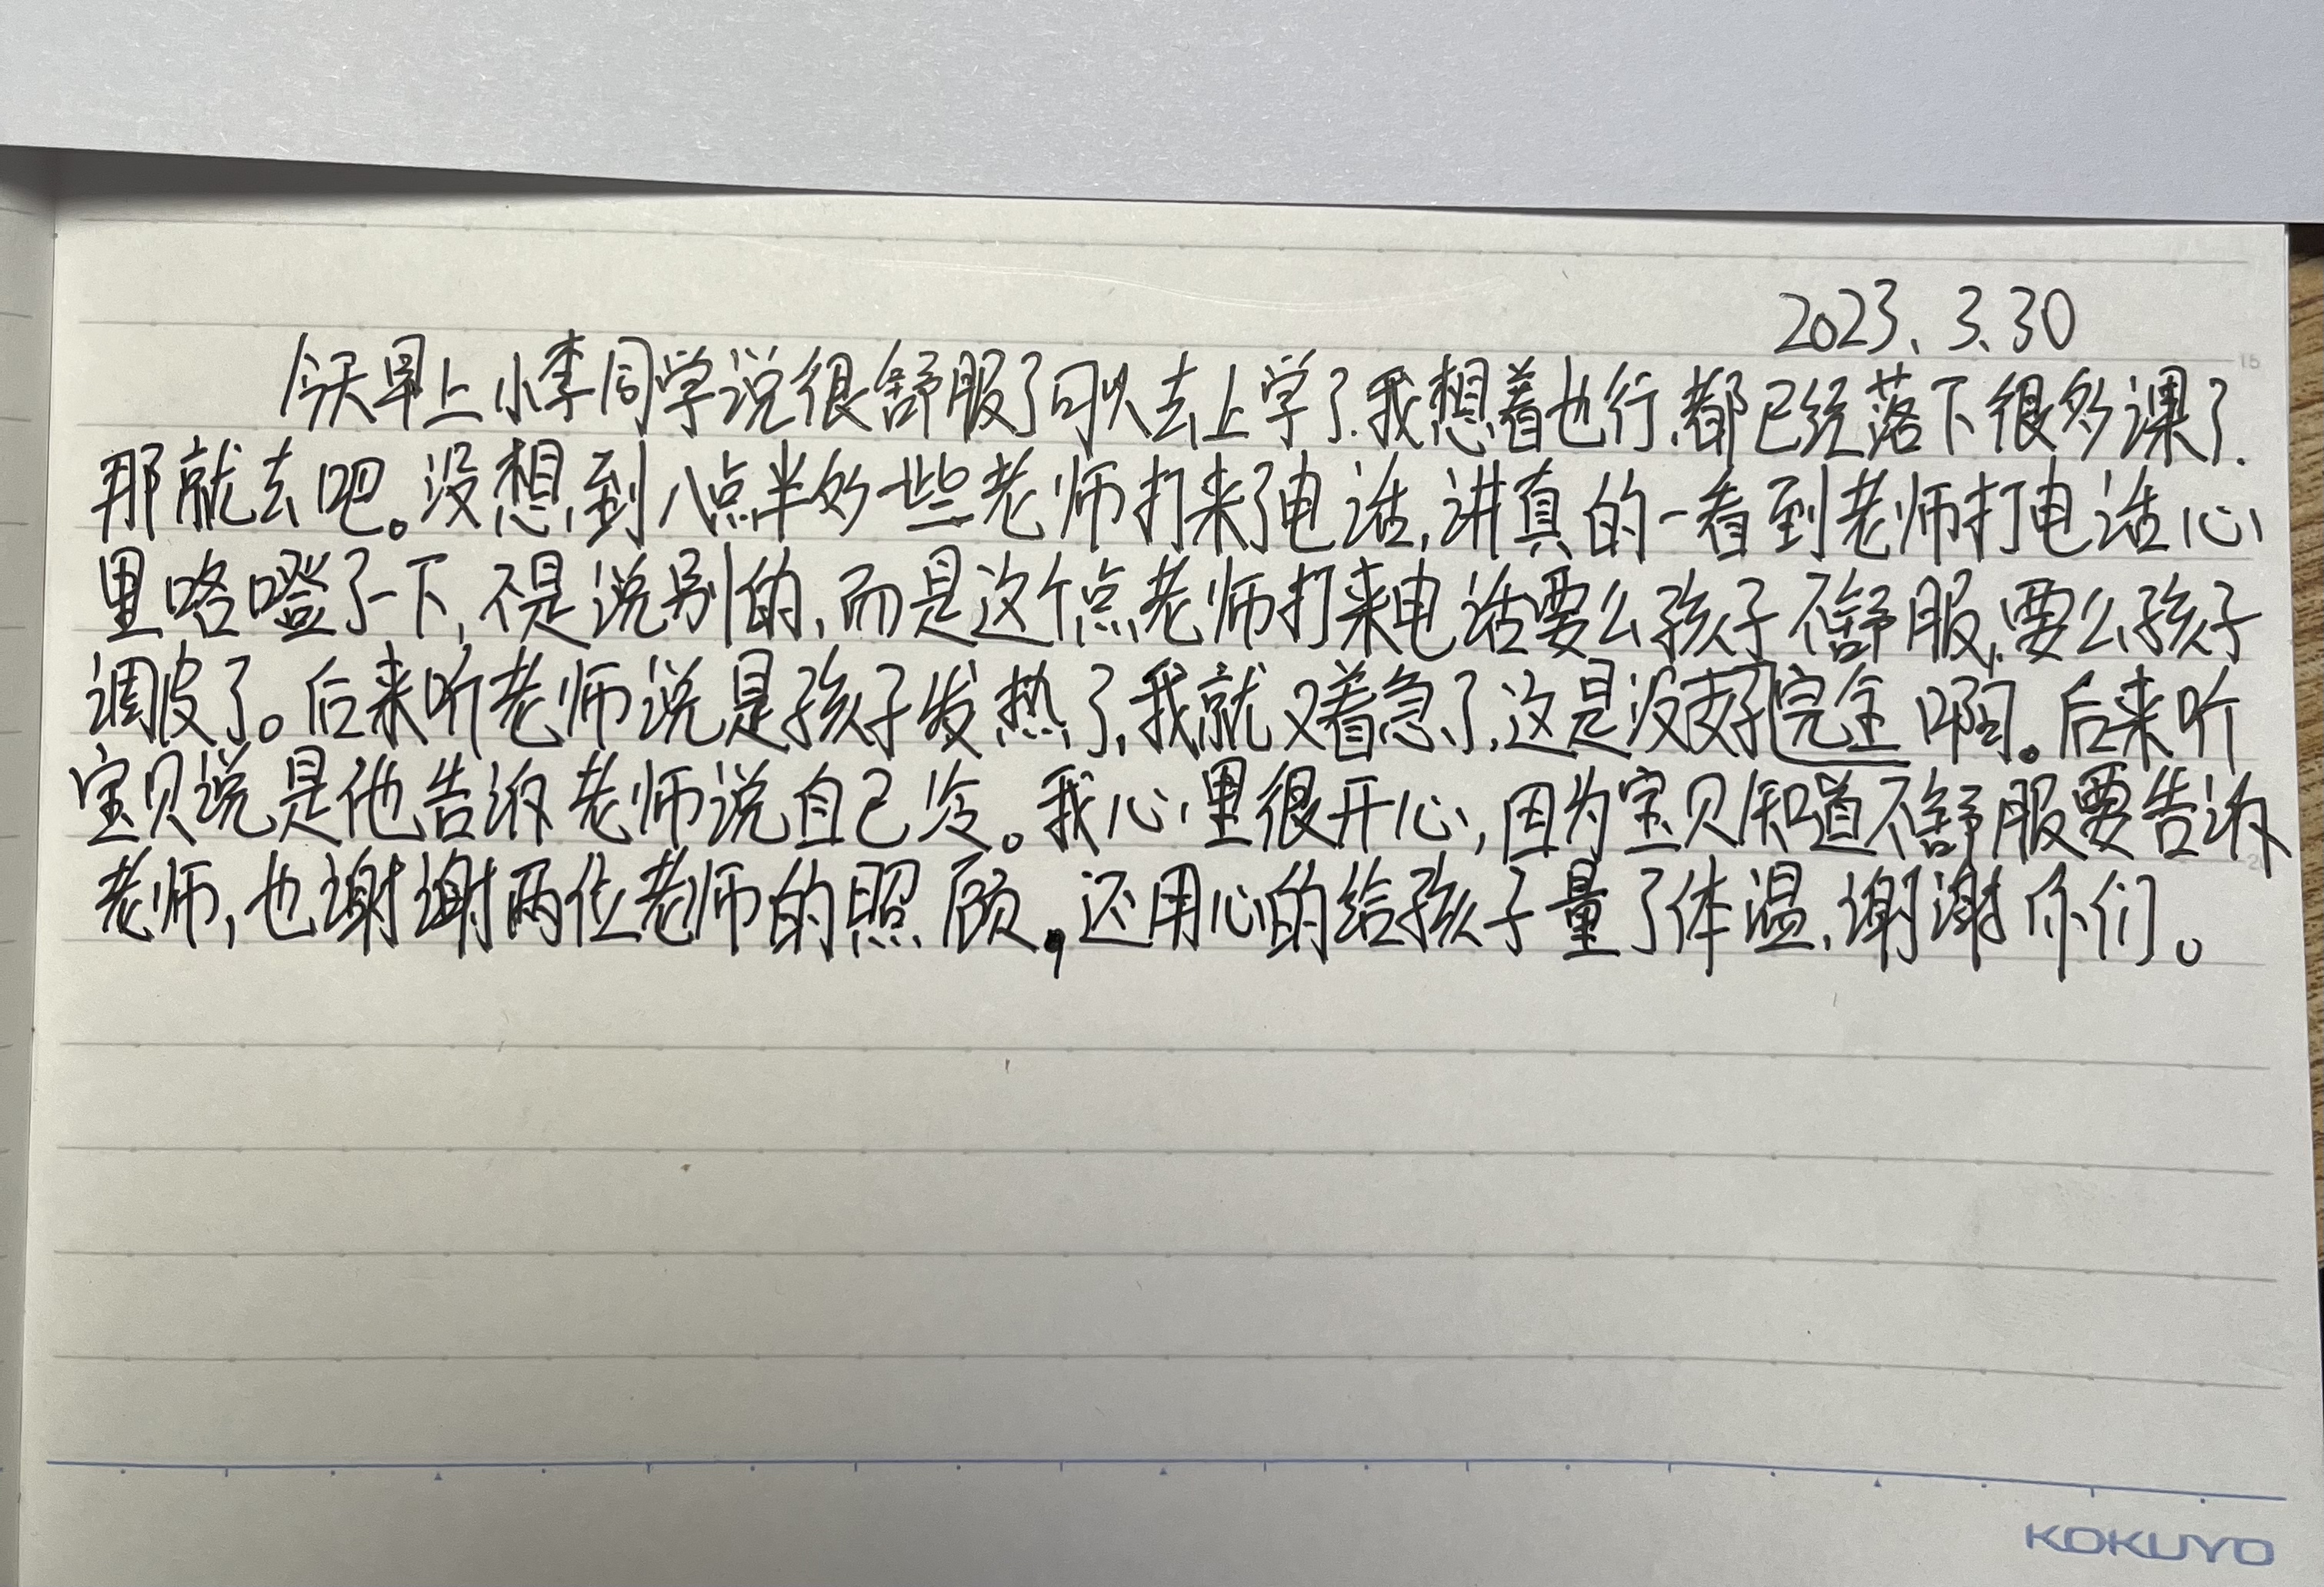 2023.3.30
今天早上小李同学说很舒服了可以去上学了.我想着也行,都已经落下很多课了.
那就去吧。没想到八点半多一些老师打来了电话,讲真的一看到老师打电话心
里咯噔了一下,不是说别的,而是这个点老师打来电话要么孩子不舒服,要么孩子
调皮了。后来听老师说是孩子发热了,我就又着急了,这是没好完全啊。后来听
宝贝说是他告诉老师说自己冷。我心里很开心,因为宝贝知道不舒服要告诉
老师,也谢谢两位老师的照顾,还用心的给孩子量了体温,谢谢你们。
KOKUYO